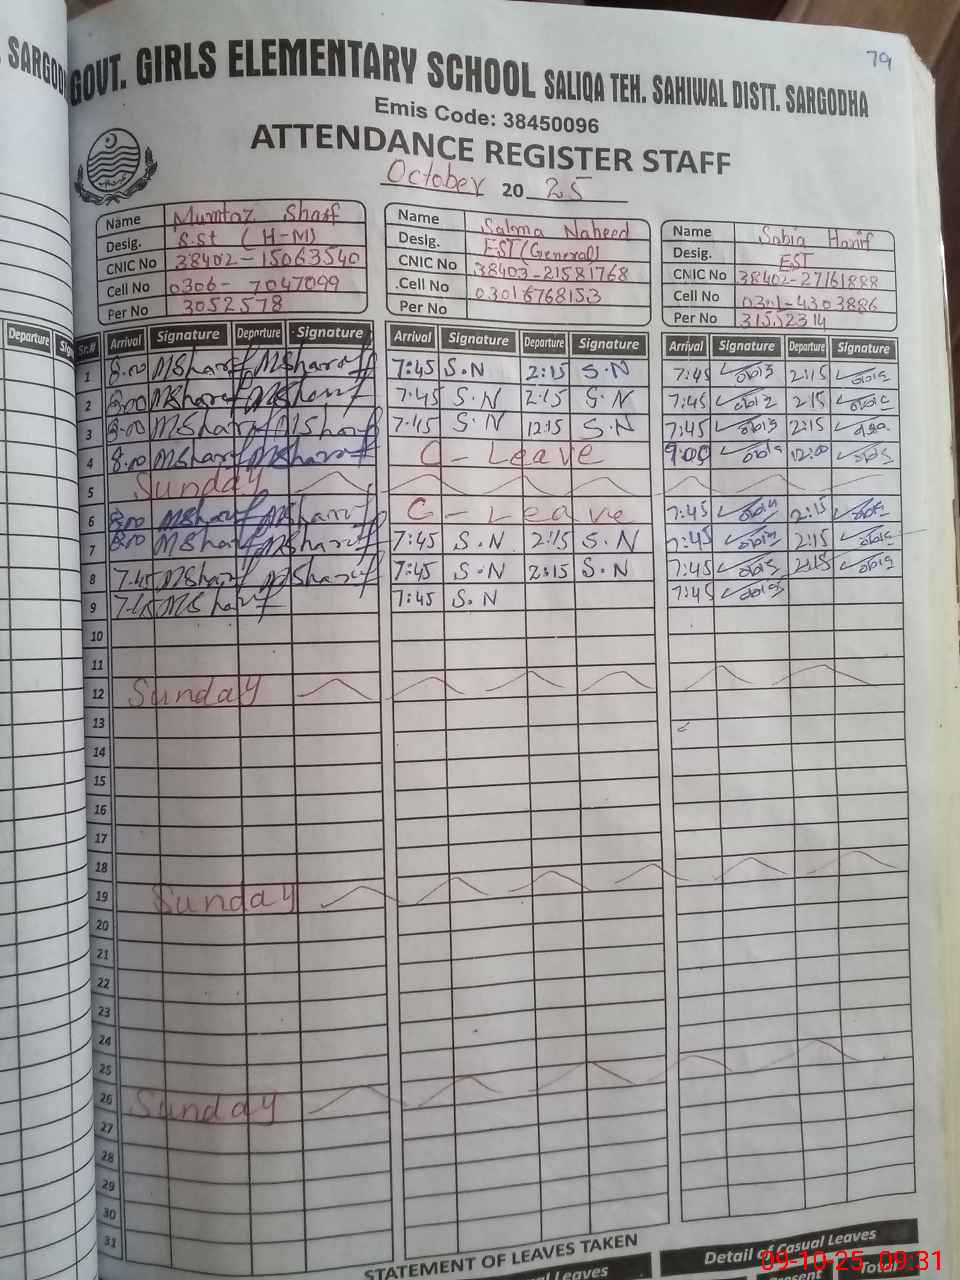 SARGOD
GOVT. GIRLS ELEMENTARY SCHOOL SALIQA TEH. SAHIWAL DISTT. SARGODHA
79
Emis Code: 38450096
ATTENDANCE REGISTER STAFF
October 20 25
Name Mumtaz Sharf
Desig. S.St (H-M)
CNIC No 38402-15063540
Cell No 0306- 7047099
Per No 3052578
Name Salma Naheed
Desig. EST (General)
CNIC No 38403-21581768
Cell No 03016768153
Per No
Name Sabia Hanif
Desig. EST
CNIC No 38402-27161888
Cell No 0301-4303886
Per No 31552314
Departure Sig
Sr.# Arrival Signature Departure Signature Arrival Signature Departure Signature Arrival Signature Departure Signature
1 8:00 MSharif MSharif 7:45 S.N 2:15 S.N 7:45 2:15
2 8:00 MSharif MSharif 7:45 S.N 2:15 S.N 7:45 2:15
3 8:00 MSharif MSharif 7:45 S.N 12:15 S.N 7:45 2:15
4 8:00 MSharif MSharif C-Leave 9:00 12:00
5 Sunday
6 8:00 MSharif MSharif C-Leave 7:45 2:15
7 8:00 MSharif MSharif 7:45 S.N 2:15 S.N 7:45 2:15
8 7:45 MSharif MSharif 7:45 S.N 2:15 S.N 7:45 2:15
9 7:45 MSharif 7:45 S.N 7:45
10
11
12 Sunday
13
14
15
16
17
18
19 Sunday
20
21
22
23
24
25
26 Sunday
27
28
29
30
31
STATEMENT OF LEAVES TAKEN
Detail of Casual Leaves
Leaves
Present
Total
09-10-25 09:31